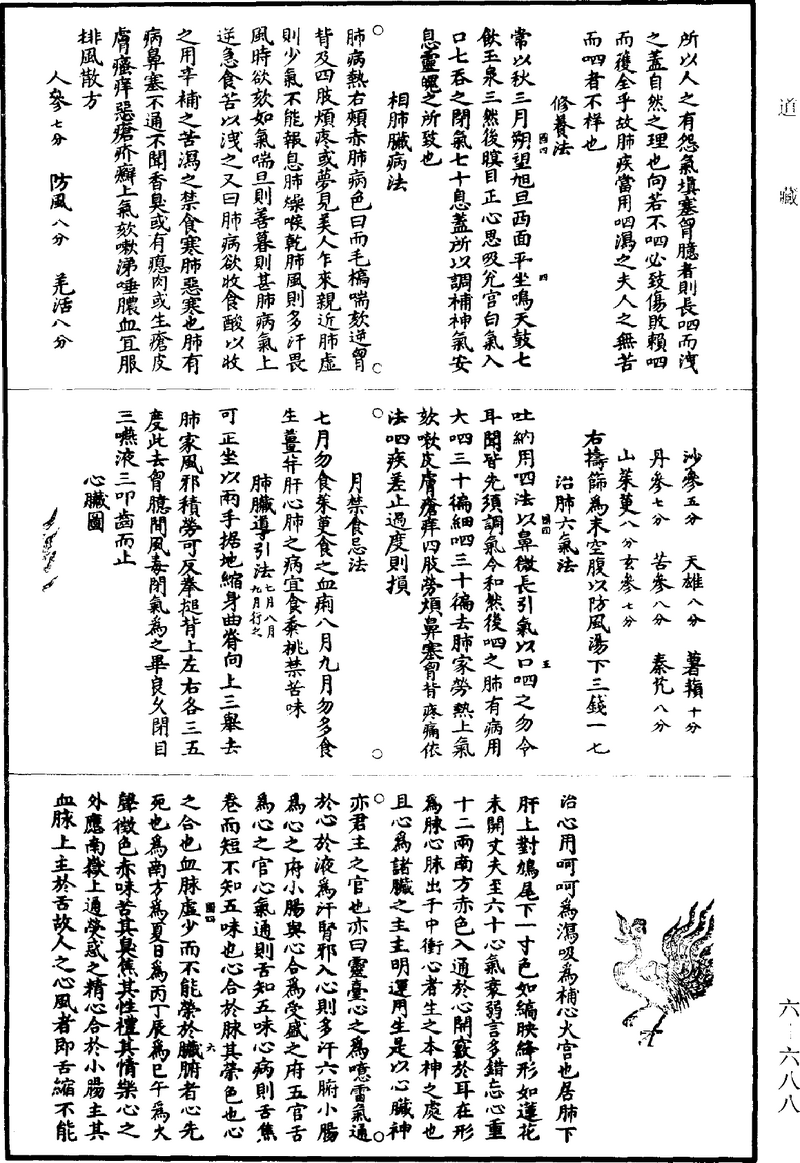 道藏
六—六八八
所以人之有怨氣填塞胷臆者則長呬而洩
之蓋自然之理也向若不呬必致傷敗賴呬
而獲全乎故肺疾當用呬瀉之夫人之無苦
而呬者不祥也
修養法
常以秋三月朔望旭旦西面平坐鳴天鼓七
飲玉泉三然後瞑目正心思吸兊宮白氣入
口七吞之閉氣七十息蓋所以調補神氣安
息靈魄之所致也
相肺臟病法
肺病熱右頰赤肺病色白而毛槁喘欬逆胷
背及四肢煩疼或夢見美人乍來親近肺虛
則少氣不能報息肺燥喉乾肺風則多汗畏
風時欲欬如氣喘旦則善暮則甚肺病氣上
逆急食苦以洩之又曰肺病欲收食酸以收
之用辛補之苦瀉之禁食寒肺惡寒也肺有
病鼻塞不通不聞香臭或有瘜肉或生瘡皮
膚瘙痒惡瘡疥癬上氣欬嗽涕唾膿血宜服
排風散方
人參七分 防風八分 羌活八分
沙參五分 天雄八分 薯蕷十分
丹參七分 苦參八分 秦艽八分
山茱萸八分 玄參七分
右擣篩爲末空腹以防風湯下三錢一七
治肺六氣法
吐納用四法以鼻微長引氣以口呬之勿令
耳聞皆先須調氣令和然後呬之肺有病用
大呬三十徧細呬三十徧去肺家勞熱上氣
欬嗽皮膚瘡痒四肢勞煩鼻塞胷背疼痛依
法呬疾差止過度則損
月禁食忌法
七月勿食茱萸食之血痢八月九月勿多食
生薑并肝心肺之病宜食黍桃禁苦味
肺臟導引法七月八月九月行之
可正坐以兩手據地縮身曲脊向上三舉去
肺家風邪積勞可反拳搥背上左右各三五
度此去胷臆間風毒閉氣爲之畢良久閉目
三嚥液三叩齒而止
心臟圖
治心用呵呵爲瀉吸爲補心火宮也居肺下
肝上對鳩尾下一寸色如縞映絳形如蓮花
未開丈夫至六十心氣衰弱言多錯忘心重
十二兩南方赤色入通於心開竅於耳在形
爲脉心脉出于中衝心者生之本神之處也
且心爲諸臟之主主明運用生是以心臟神
亦君主之官也亦曰靈臺心之爲噫雷氣通
於心於液爲汗腎邪入心則多汗六腑小腸
爲心之府小腸與心合爲受盛之府五官舌
爲心之官心氣通則舌知五味心病則舌焦
卷而短不知五味也心合於脉其榮色也心
之合也血脉虛少而不能榮於臟腑者心先
死也爲南方爲夏日爲丙丁辰爲巳午爲火
聲徵色赤味苦其臭焦其性禮其情樂心之
外應南嶽上通熒惑之精心合於小腸主其
血脉上主於舌故人之心風者即舌縮不能